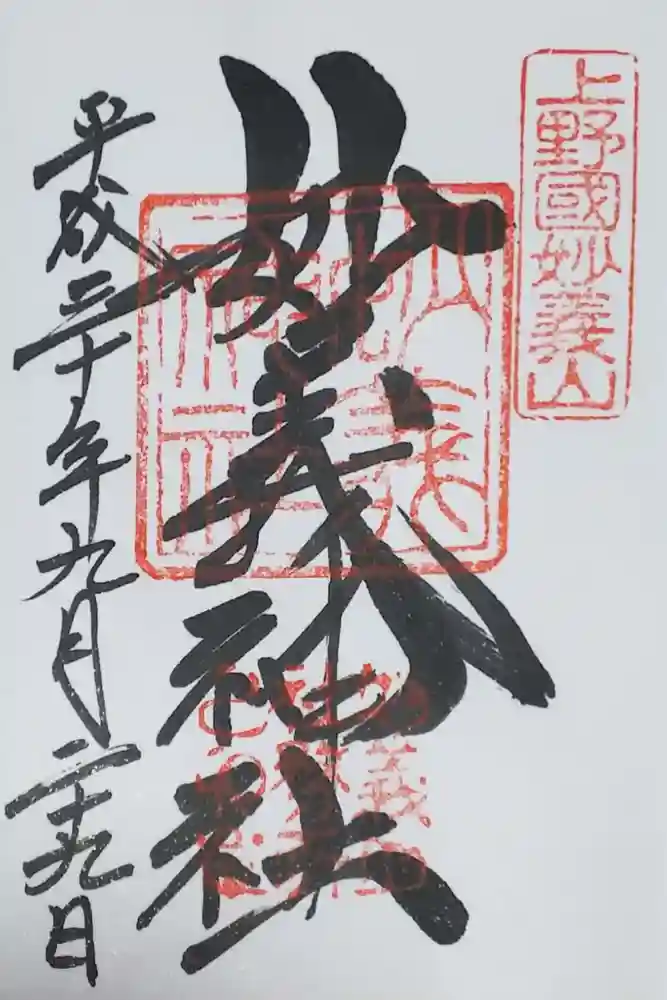 上野國妙義山
妙義神社
平成三十年九月二十九日